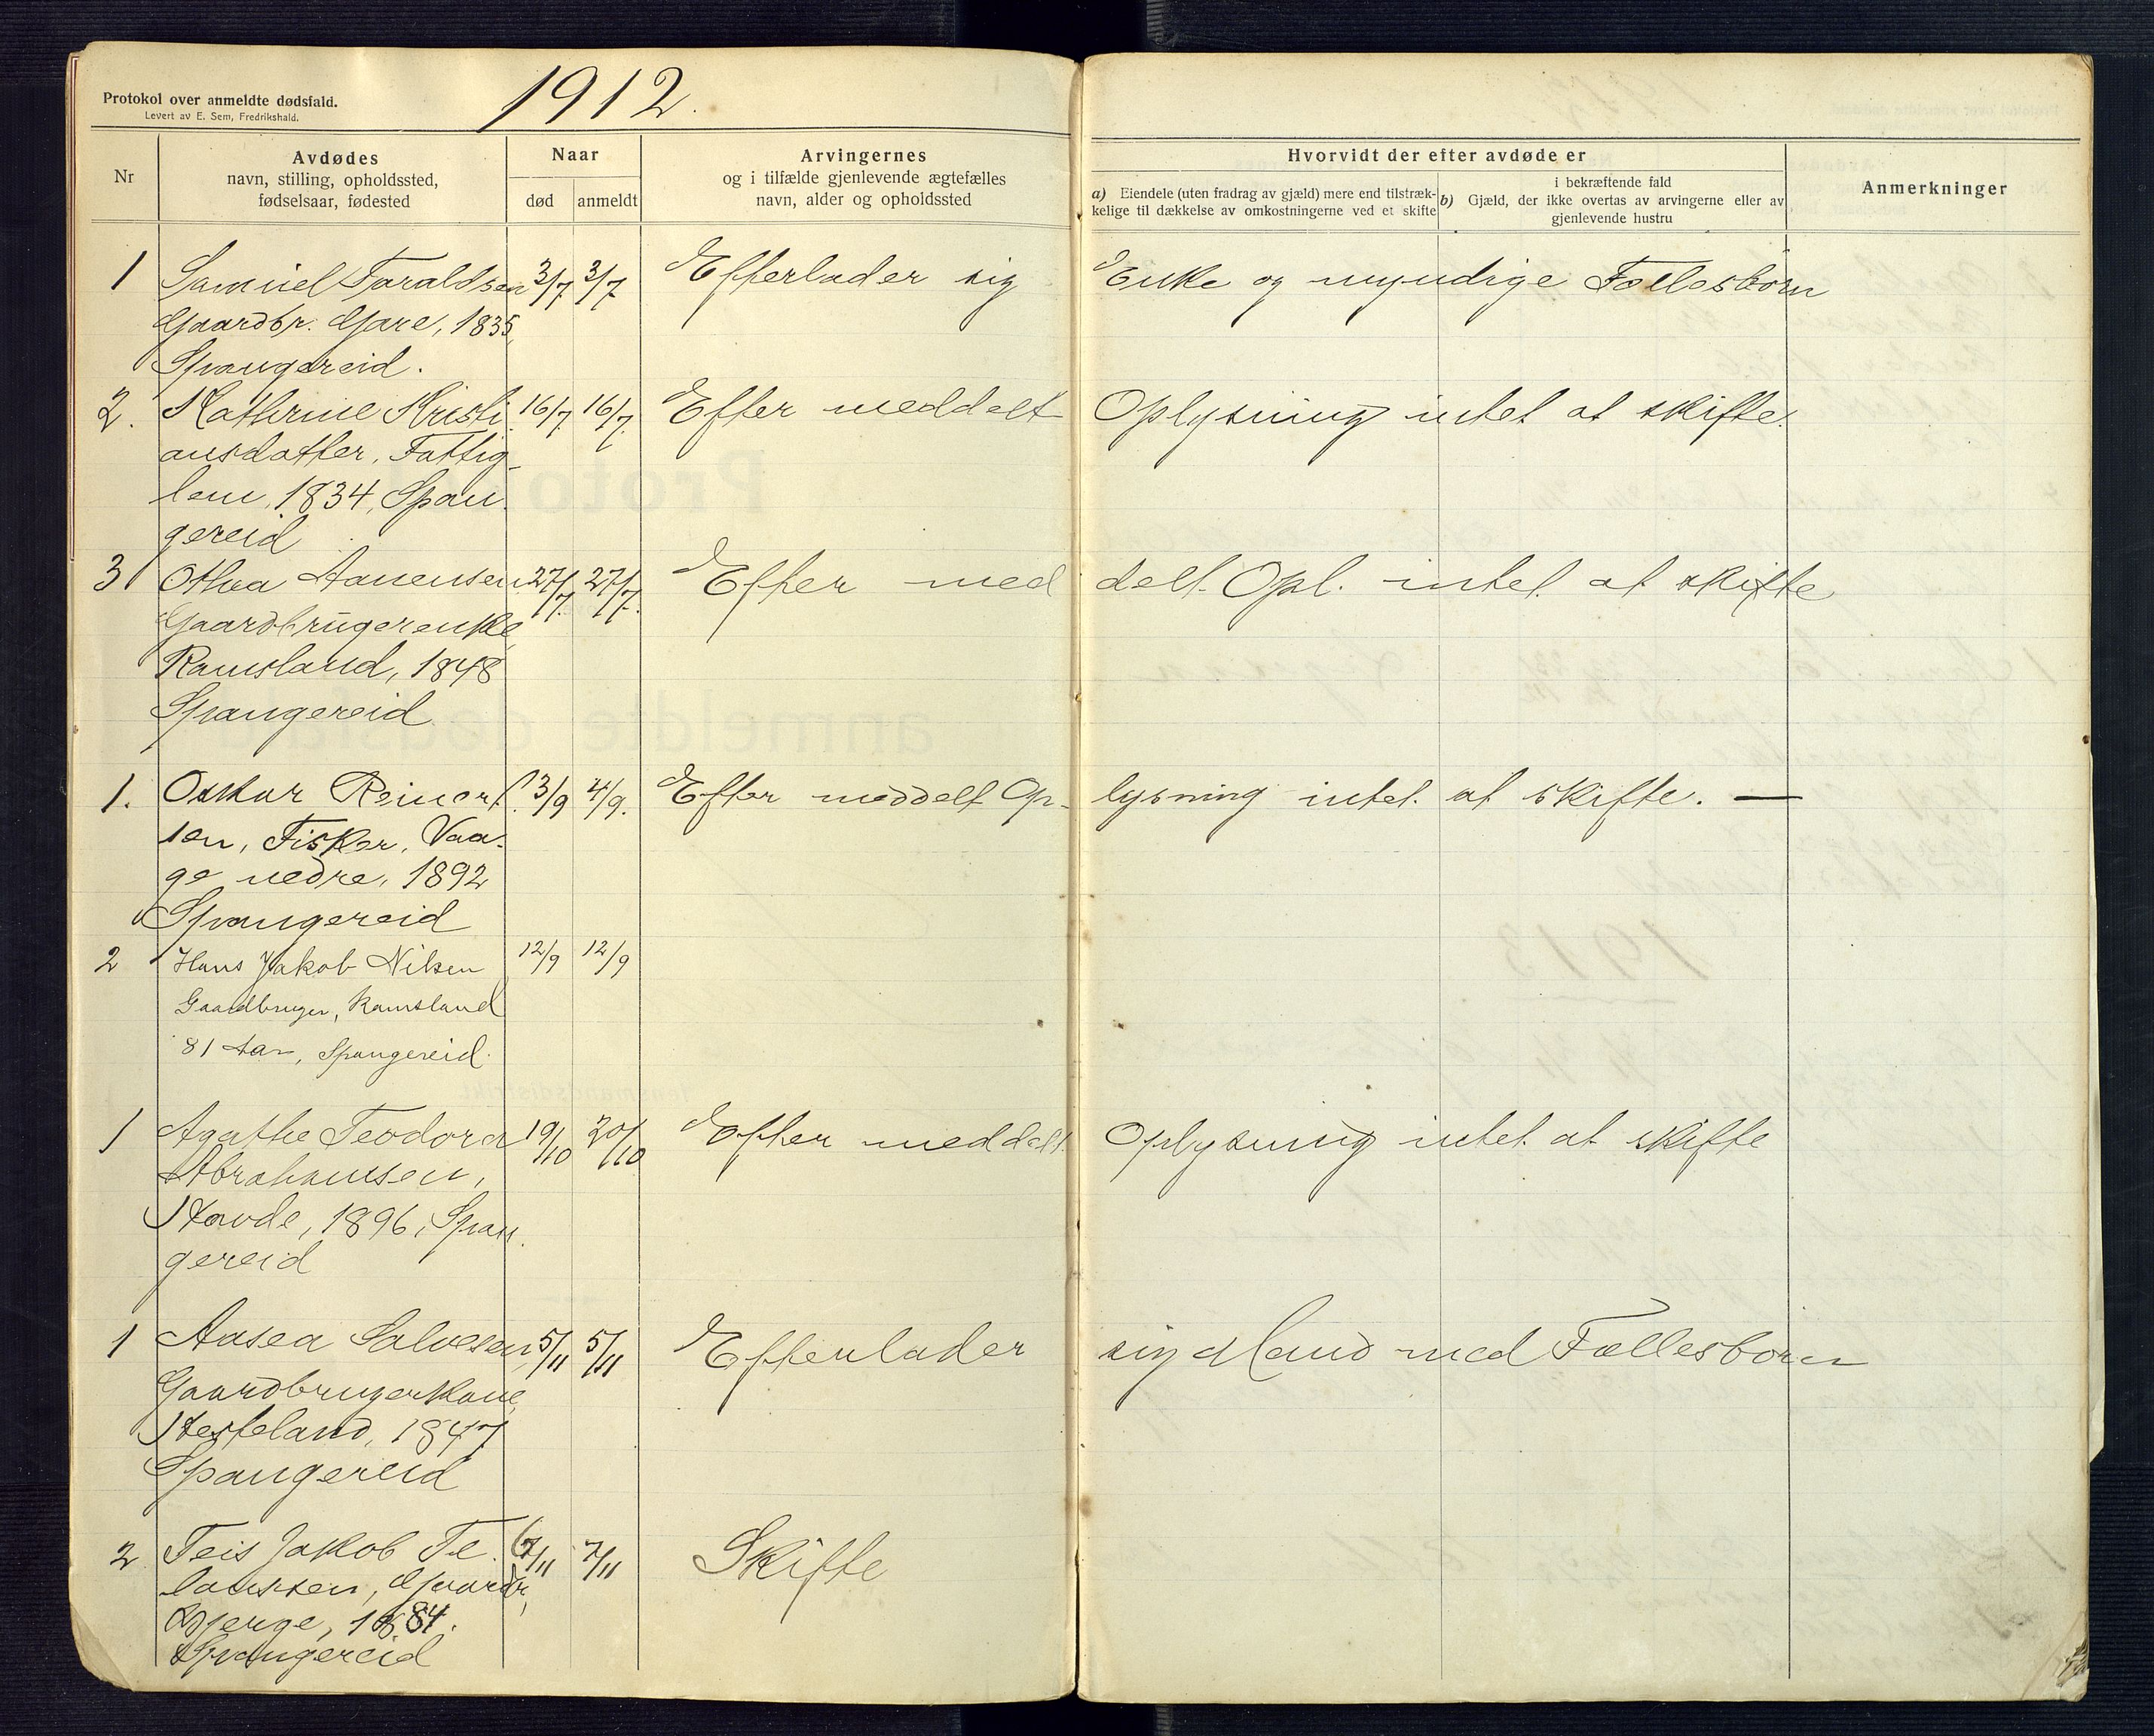 Protokol over anmeldte dødsfald.
Levert av E. Sem, Fredrikshald.
1912.
Nr
Avdødes
navn, stilling, opholdssted,
fødselsaar, fødested
Naar
død
anmeldt
Arvingernes
og i tilfælde gjenlevende ægtefælles
navn, alder og opholdssted
Hvorvidt der efter avdøde er
a) Eiendele (uten fradrag av gjæld) mere end tilstræk-
kelige til dækkelse av omkostningerne ved et skifte
i bekræftende fald
b) Gjæld, der ikke overtas av arvingerne eller av
gjenlevende hustru
Anmerkninger
1 Samuel Taraldsen 3/7 3/7 Efterlader sig Enke og myndige Fællesbørn
Gaardbr. Gare, 1835,
Spangereid.
2. Kathrine Kristi 16/7 16/7 Efter meddelt Oplysning intet at skifte.
ansdatter, Fattig-
lem, 1834, Span
gereid
3 Othea Aanensen 27/7 27/7 Efter med delt Opl. intet at skifte
Gaardbrugerenke
Ramsland, 1848
Spangereid
1. Oskar Reinert 3/9 4/9. Efter meddelt Op- lysning intet at skifte. —
sen, Fisker, Vaa-
ge nedre, 1892
Spangereid
2 Hans Jakob Nilsen 12/9 12/9
Gaardbruger, Ramsland
81 Aar, Spangereid.
1 Agathe Teodora 19/10 20/10 Efter meddelt Oplysning intet at skifte
Abrahamsen,
Stavde, 1896, Span
gereid
1 Aasea Salvesen 5/11 5/11 Efterlader sig Mand med Fællesbørn
Gaardbrugerkone,
Hesteland, 1847
Spangereid
2 Teis Jakob Te 7/11 Skifte
lausen, Gaardbr,
Bjerge, 1884.
Spangereid